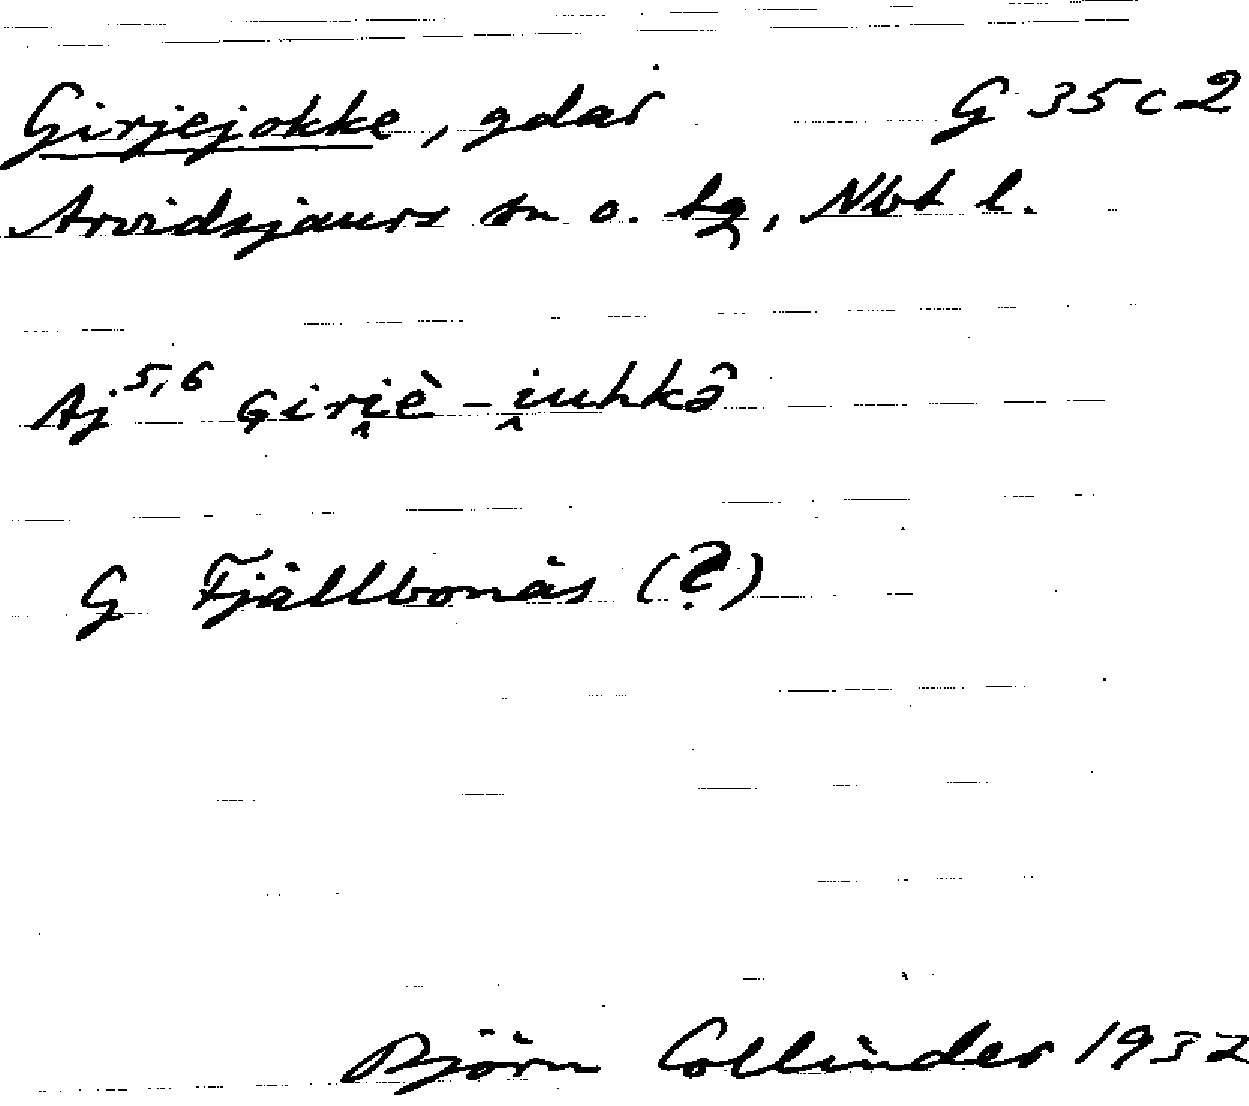 Girjejokke, gdar G 35 c 2
Arvidsjaurs sn o. tg, Nbt l.
Aj 5,6 Giri̯è-i̯uhkə̑
G Fjällbonäs (?)
Björn Collinder 1932